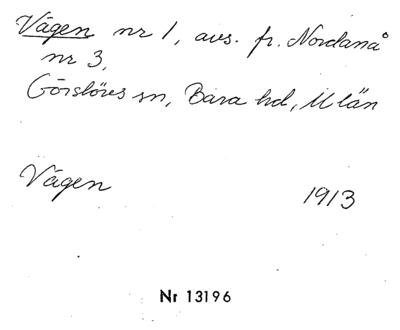 Vägen nr 1, avs. fr. Nordanå
nr 3,
Görslövs sn, Bara hd, M län
Vägen
1913
Nr 13196